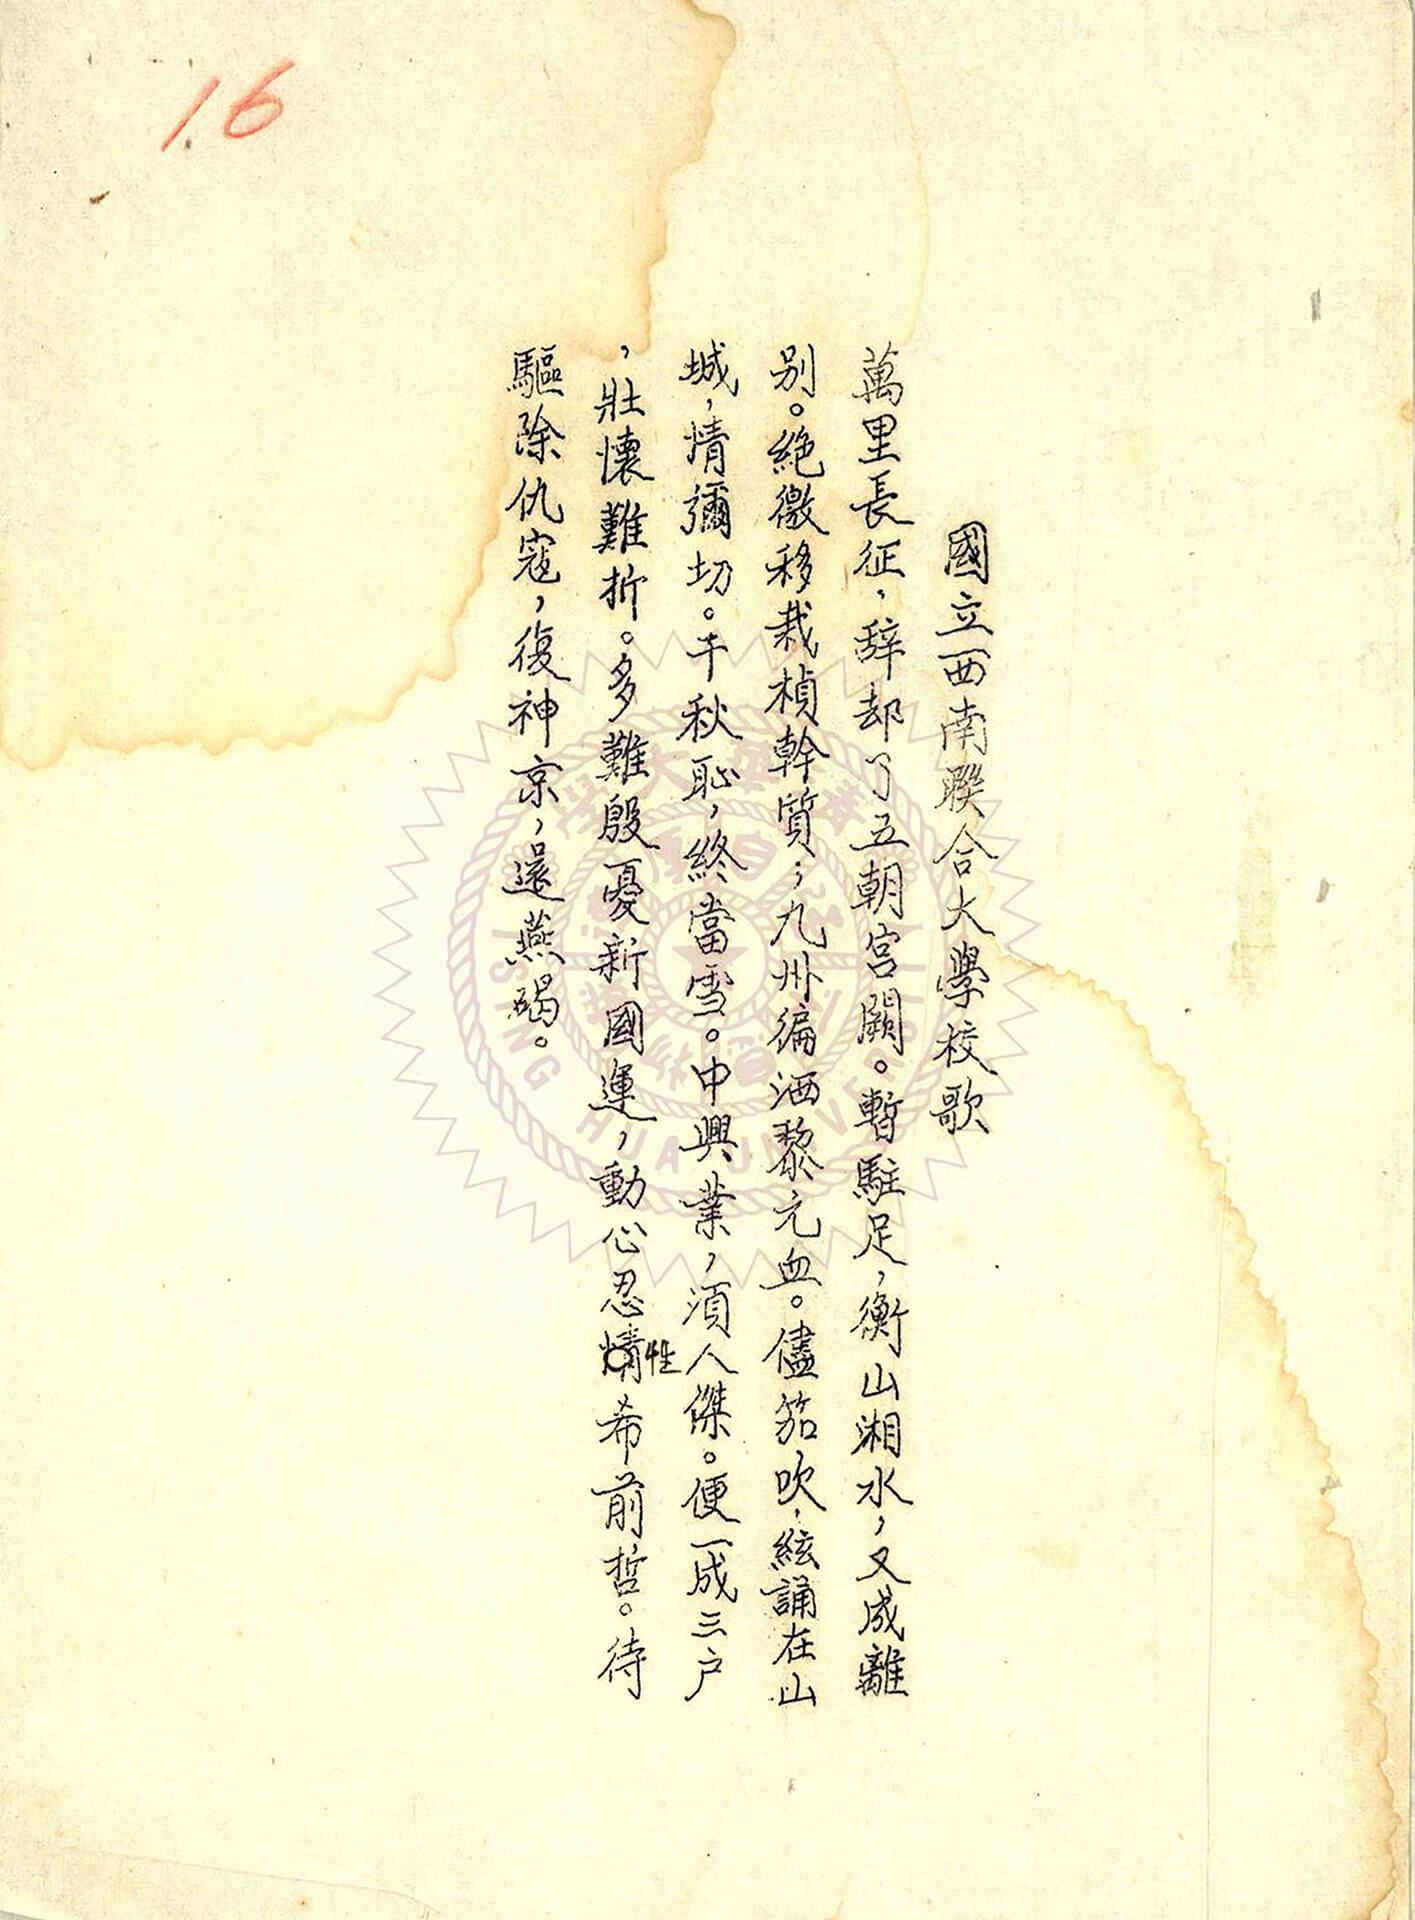 16
國立西南聯合大學校歌
萬里長征，辞却了五朝宮闕。暫駐足，衡山湘水，又成離
别。絶徼移栽楨幹質；九州徧洒黎元血。儘笳吹，絃誦在山
城，情彌切。千秋恥，終當雪。中興業，須人傑。便一成三户
，壯懷難折。多難殷憂新國運，動心忍情性希前哲。待
驅除仇寇，復神京，還燕碣。
TSING HUA UNIVERSITY